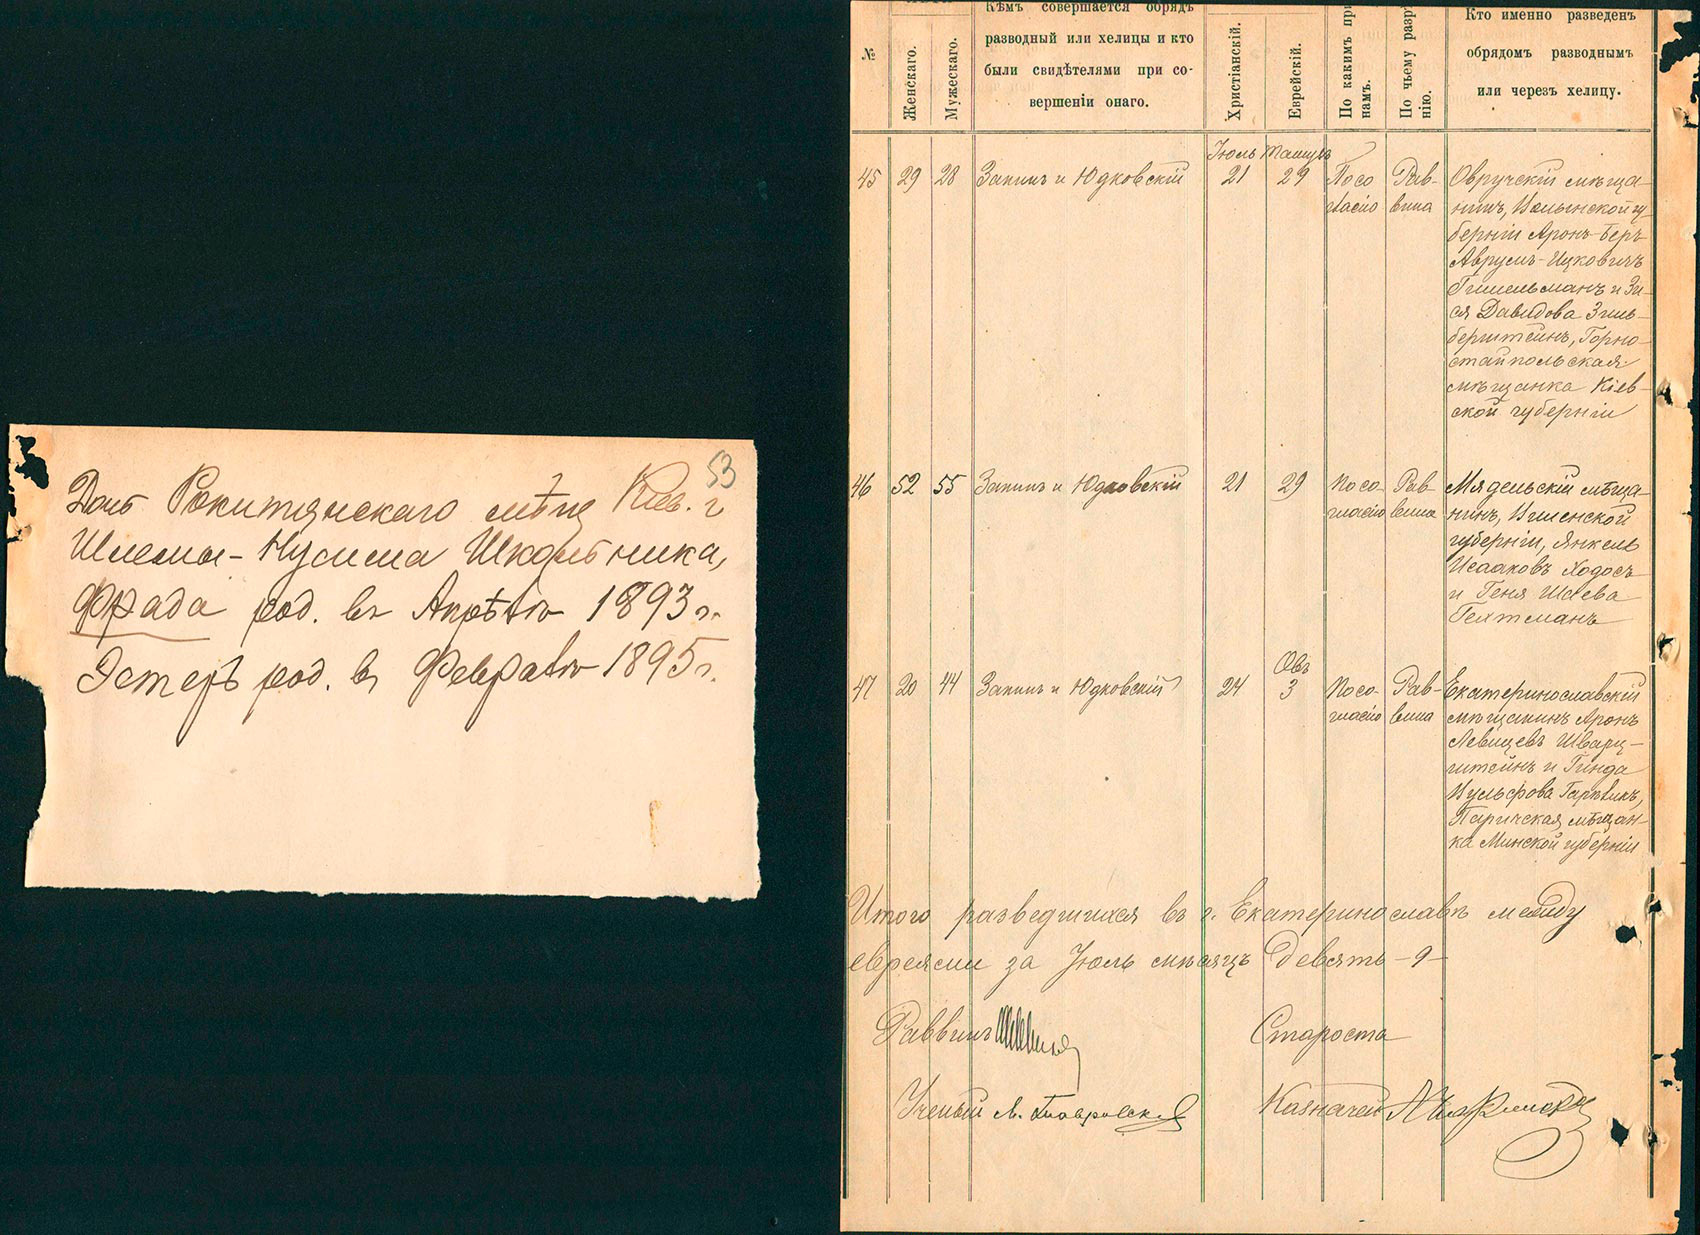 53
Дочь Рокитянскаго мѣщ Кіев. г
Шлемы-Нусима Школьника,
Фрада род. въ Апрѣлѣ 1893 г.
Эстеръ род. въ Февралѣ 1895 г.
№
Женскаго.
Мужескаго.
Кѣмъ совершается обрядъ
разводный или хелицы и кто
были свидѣтелями при со-
вершеніи онаго.
Христіанскій.
Еврейскій.
По какимъ при
намъ.
По чьему разр
нію.
Кто именно разведенъ
обрядомъ разводнымъ
или черезъ хелицу.
Іюль
45 29 28 Запинъ и Юдковскій 21 29
По со
гласію
Рав-
вина
Овручскій мѣща-
нинъ, Волынской гу-
берніи Аронъ-Беръ
Аврумъ-Ицковичъ
и Зи-
ся Давидова Зиль-
берштейнъ, Горно-
стайпольская
мѣщанка Кіев-
ской губерніи
46 52 55 Запинъ и Юдковскій 21 29
По со-
гласію
Рав-
вина
Мядельскій мѣща-
нинъ, Виленской
губерніи, Янкель
Исааковъ Ходосъ
и Геня Шаева
Гехтманъ
Овъ
47 20 44 Запинъ и Юдковскій 24 3
По со-
гласію
Рав-
вина
Екатеринославскій
мѣщанинъ Аронъ
Левицевъ Шварц-
штейнъ и Гинда
Вульфова
Паричская мѣщан-
ка Минской губерніи
Итого разведшихся въ г. Екатеринославѣ между
евреями за Іюль мѣсяцъ Девять -9-
Раввинъ
Староста
Ученый
Казначей